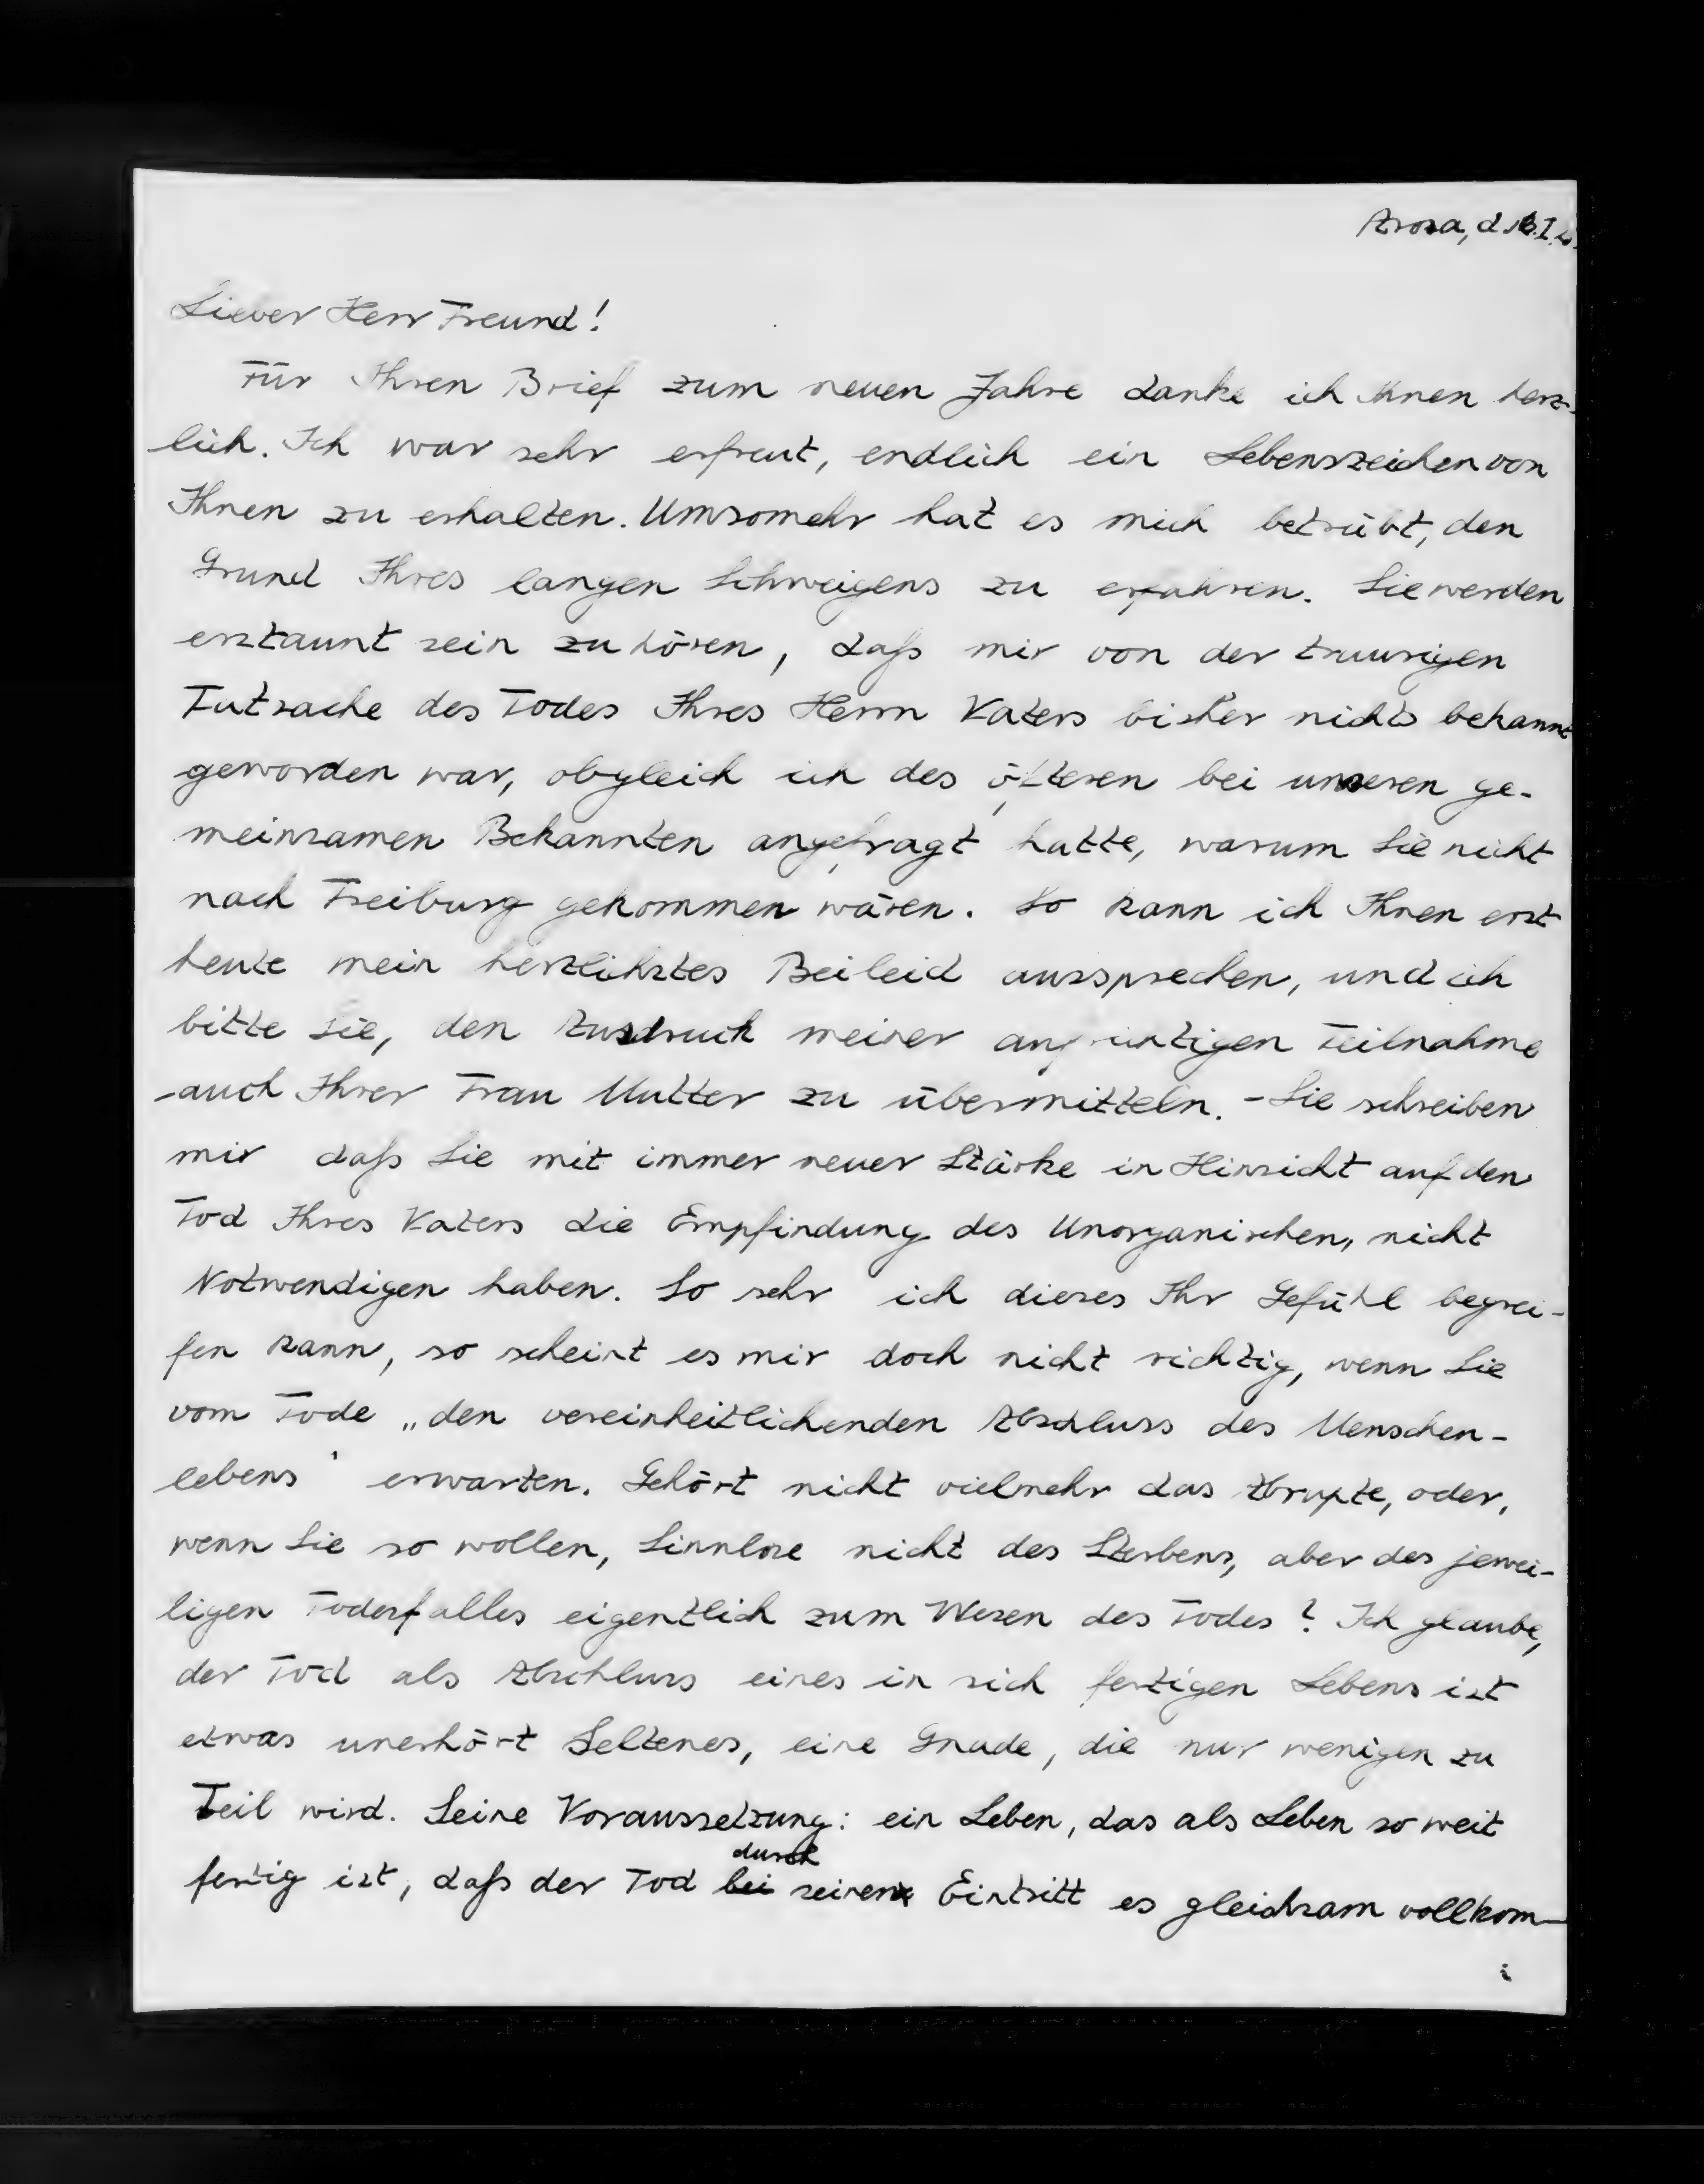 Arosa, d. 13.I.
Lieber Herr Freund!
Für Ihren Brief zum neuen Jahre danke ich Ihnen herz-
lich. Ich war sehr erfreut, endlich ein Lebenszeichen von
Ihnen zu erhalten. Umsomehr hat es mich betrübt, den
Grund Ihres langen Schweigens zu erfahren. Sie werden
erstaunt sein zu hören, daß mir von der traurigen
Tatsache des Todes Ihres Herrn Vaters bisher nichts bekannt
geworden war, obgleich ich des öfteren bei unseren ge-
meinsamen Bekannten angefragt hatte, warum Sie nicht
nach Freiburg gekommen wären. So kann ich Ihnen erst
heute mein herzlichstes Beileid aussprechen, und ich
bitte Sie, den Ausdruck meiner aufrichtigen Teilnahme
auch Ihrer Frau Mutter zu übermitteln. - Sie schreiben
mir daß Sie mit immer neuer Stärke in Hinsicht auf den
Tod Ihres Vaters die Empfindung des Unorganischen, nicht
Notwendigen haben. So sehr ich dieses Ihr Gefühl begrei-
fen kann, so scheint es mir doch nicht richtig, wenn Sie
vom Tode „den vereinheitlichenden Abschluss des Menschen-
lebens" erwarten. Gehört nicht vielmehr das Abrupte, oder,
wenn Sie so wollen, Sinnlose nicht des Sterbens, aber des jewei-
ligen Todesfalles eigentlich zum Wesen des Todes? Ich glaube,
der Tod als Abschluss eines in sich fertigen Lebens ist
etwas unerhört Seltenes, eine Gnade, die nur wenigen zu
Teil wird. Seine Voraussetzung: ein Leben, das als Leben so weit
durch
fertig ist, daß der Tod bei seinen Eintritt es gleichsam vollkom-